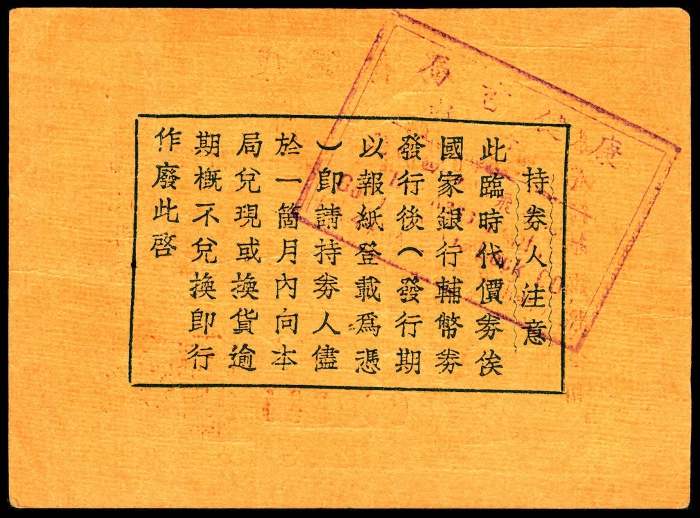 持券人注意
此臨時代價券俟
國家銀行輔幣券
發行後（發行期
以報紙登載爲憑
）卽請持券人儘
於一箇月內向本
局兌現或換貨逾
期概不兌換卽行
作廢此啓
局